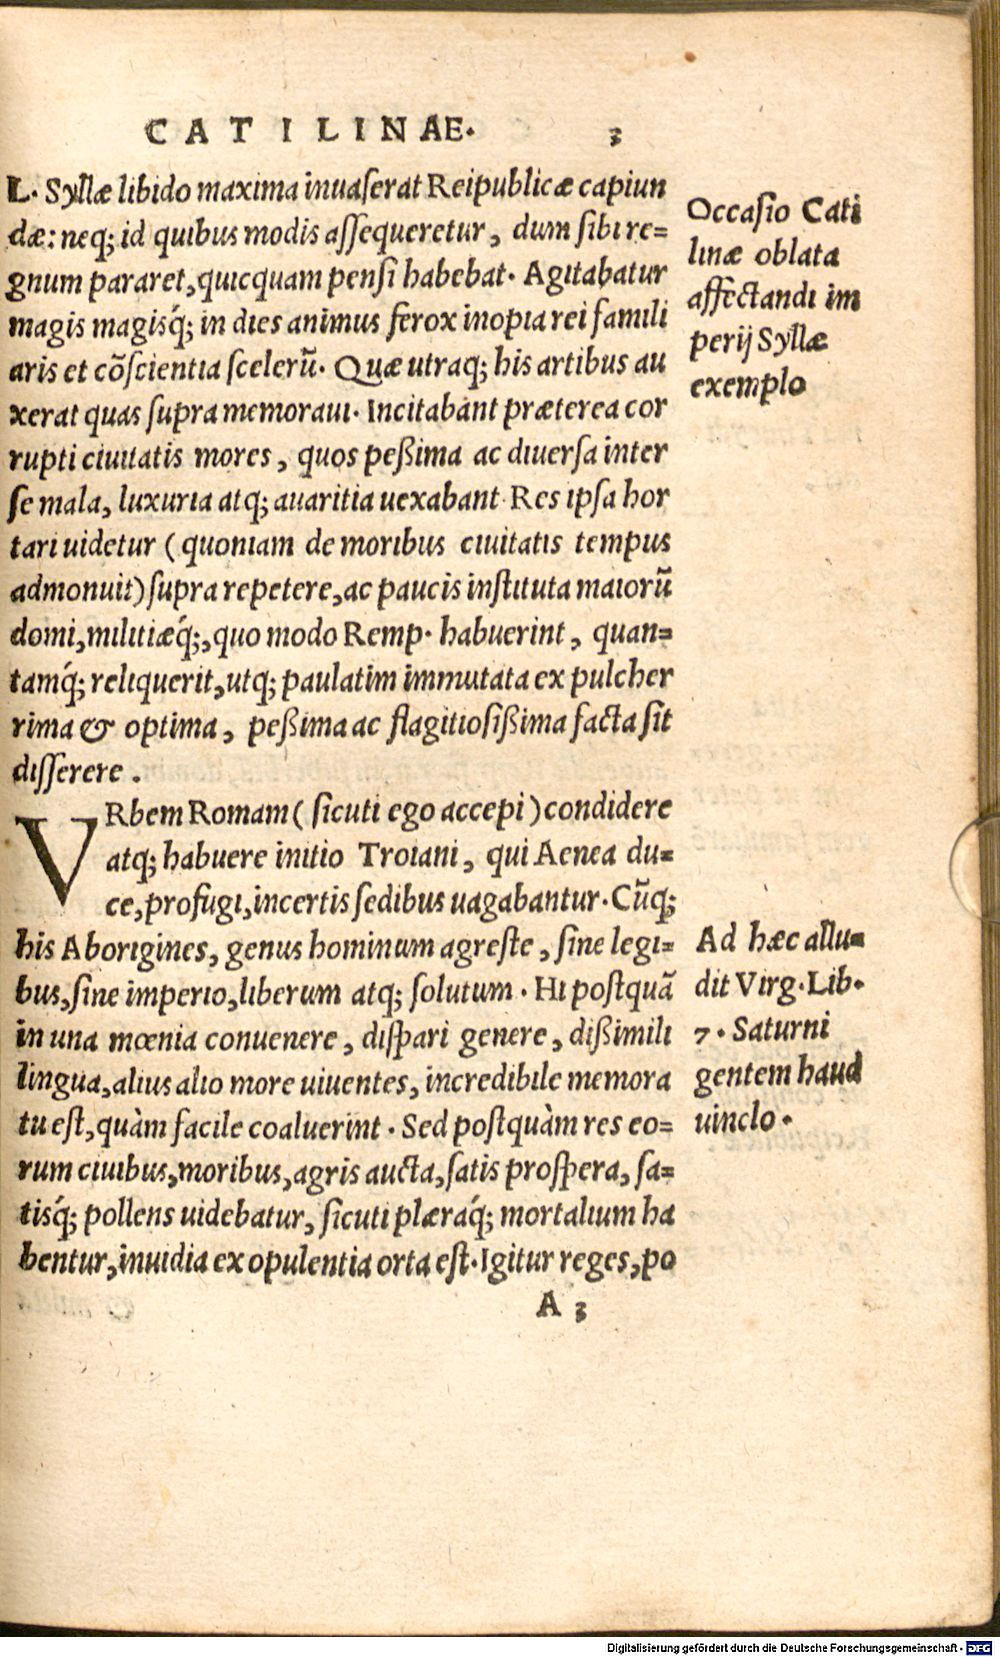 CATILINAE. 3
L. Syllæ libido maxima inuaserat Reipublicæ capiun
dæ: neq; id quibus modis assequeretur, dum sibi re=
gnum pararet, quicquam pensi habebat. Agitabatur
magis magisq́; in dies animus ferox inopia rei famili
aris et cõscientia scelerũ. Quæ utraq; his artibus au
xerat quas supra memoraui. Incitabant præterea cor
rupti ciuitatis mores, quos peßima ac diuersa inter
se mala, luxuria atq; auaritia uexabant. Res ipsa hor
tari uidetur (quoniam de moribus ciuitatis tempus
admonuit) supra repetere, ac paucis instituta maiorũ
domi, militiæq́;, quo modo Remp. habuerint, quan=
tamq́; reliquerit, utq; paulatim immutata ex pulcher
rima & optima, peßima ac flagitiosißima facta sit
disserere.
VRbem Romam (sicuti ego accepi) condidere
atq; habuere initio Troiani, qui Aenea du=
ce, profugi, incertis sedibus uagabantur. Cũq;
his Aborigines, genus hominum agreste, sine legi=
bus, sine imperio, liberum atq; solutum. Hi postquã
in una mœnia convenere, dispari genere, dißimili
lingua, alius alio more uiuentes, incredibile memora
tu est, quàm facile coaluerint. Sed postquàm res eo=
rum ciuibus, moribus, agris aucta, satis prospera, sa=
tisq́; pollens uidebatur, sicuti plæraq́; mortalium ha
bentur, inuidia ex opulentia orta est. Igitur reges, po
A 3
Occasio Cati
linæ oblata
affectandi im
perij Syllæ
exemplo
Ad hæc allu=
dit Virg. Lib.
7. Saturni
gentem haud
uinclo.
Digitalisierung gefördert durch die Deutsche Forschungsgemeinschaft - DFG